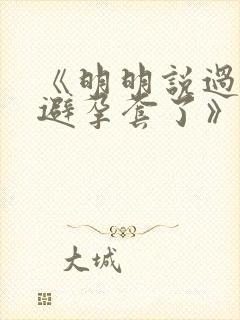 《明明説過
避孕套了》
大城